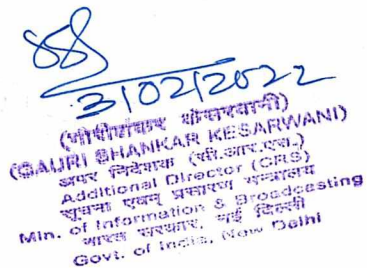 3/02/2022
(GAURI SHANKAR KESARWANI)
अपर निदेशक (सी.आर.एस.)
Additional Director (CRS)
सूचना एवम् प्रसारण मन्त्रालय
Min. of Information & Broadcasting
भारत सरकार, नई दिल्ली
Govt. of India, New Delhi